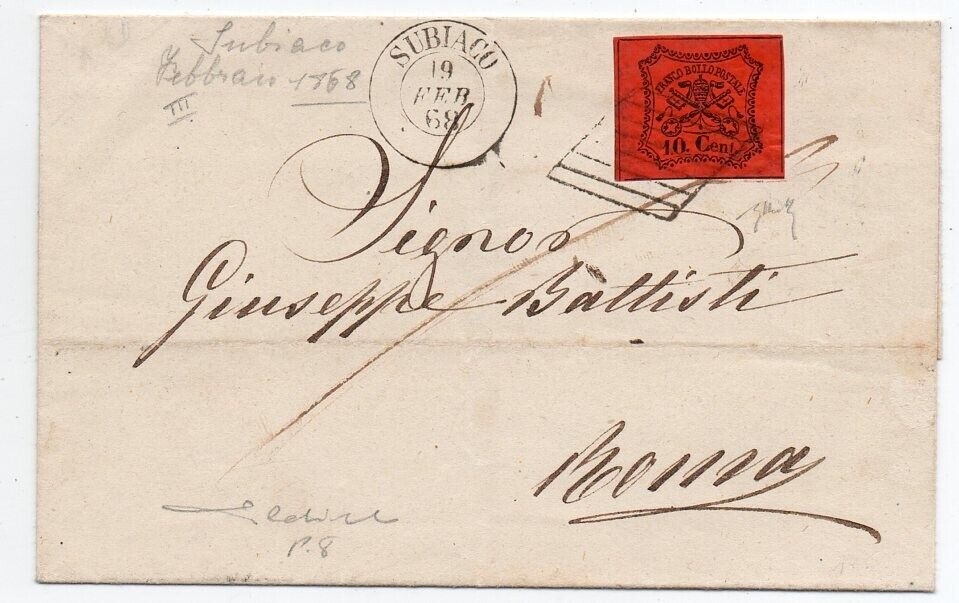 Subiaco
Febbraio 1868
III
SUBIACO
19
FEB
68
FRANCO BOLLO POSTALE
10. Cent
Signor
Giuseppe Battisti
Roma
P.8